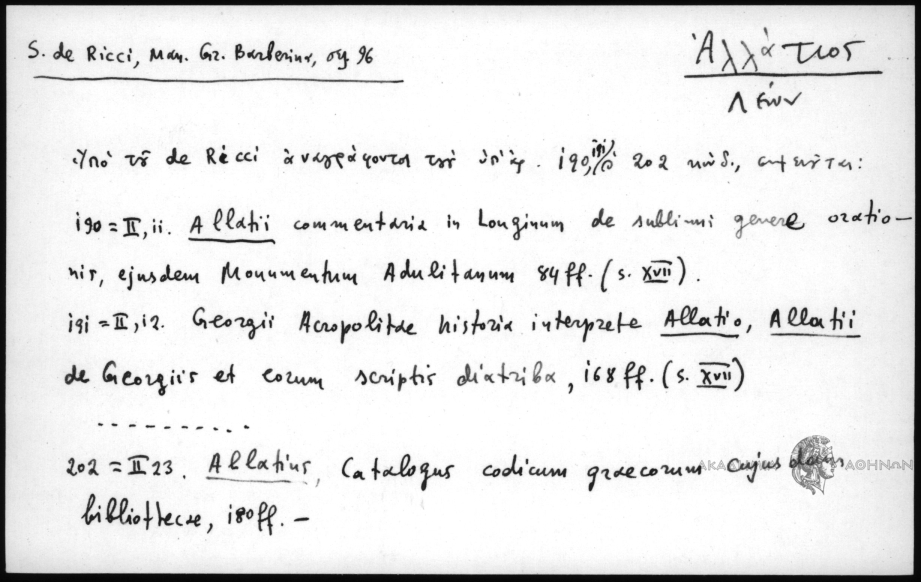 S. de Ricci, Man. Gr. Barberini, σελ 96
Ἀλλάτιος
Λέων
Ὑπὸ τοῦ de Ricci ἀναγράφονται τοῦ ὑπ' ἀρ. 190, 191, 202 κώδ.,
190 = II, 11. Allatii commentaria in Longinum de sublimi genere oratio-
nis, ejusdem Monumentum Adulitanum 84 ff. (s. XVII).
191 = II, 12. Georgii Acropolitae historia interprete Allatio, Allatii
de Georgiis et eorum scriptis diatriba, 168 ff. (s. XVII)
..........
202 = II 23. Allatius, Catalogus codicum graecorum cujusdam
bibliothecae, 180 ff. –
ΑΚΑΔΗΜΙΑ ΑΘΗΝΩΝ